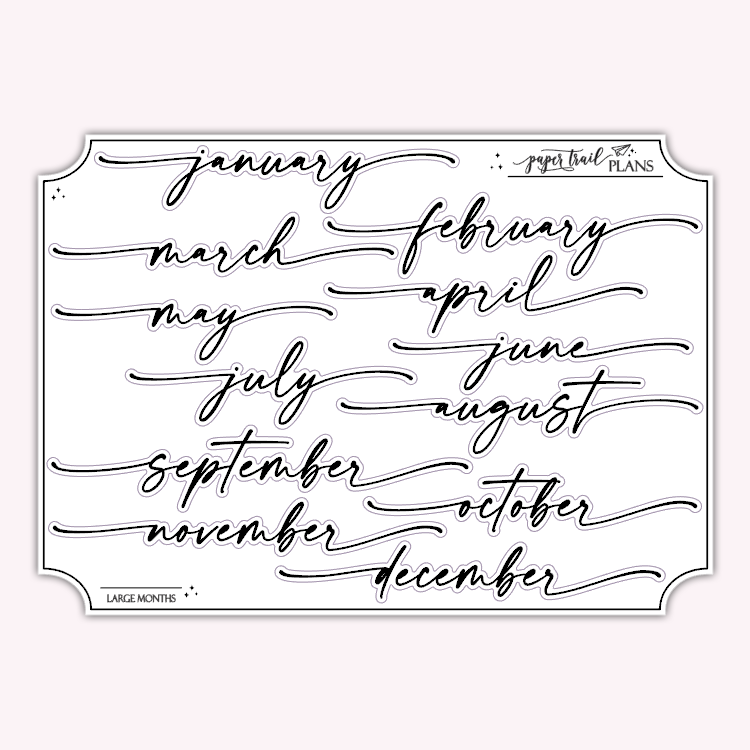 january
paper trail PLANS
february
march
april
may
june
july
august
september
october
november
december
LARGE MONTHS